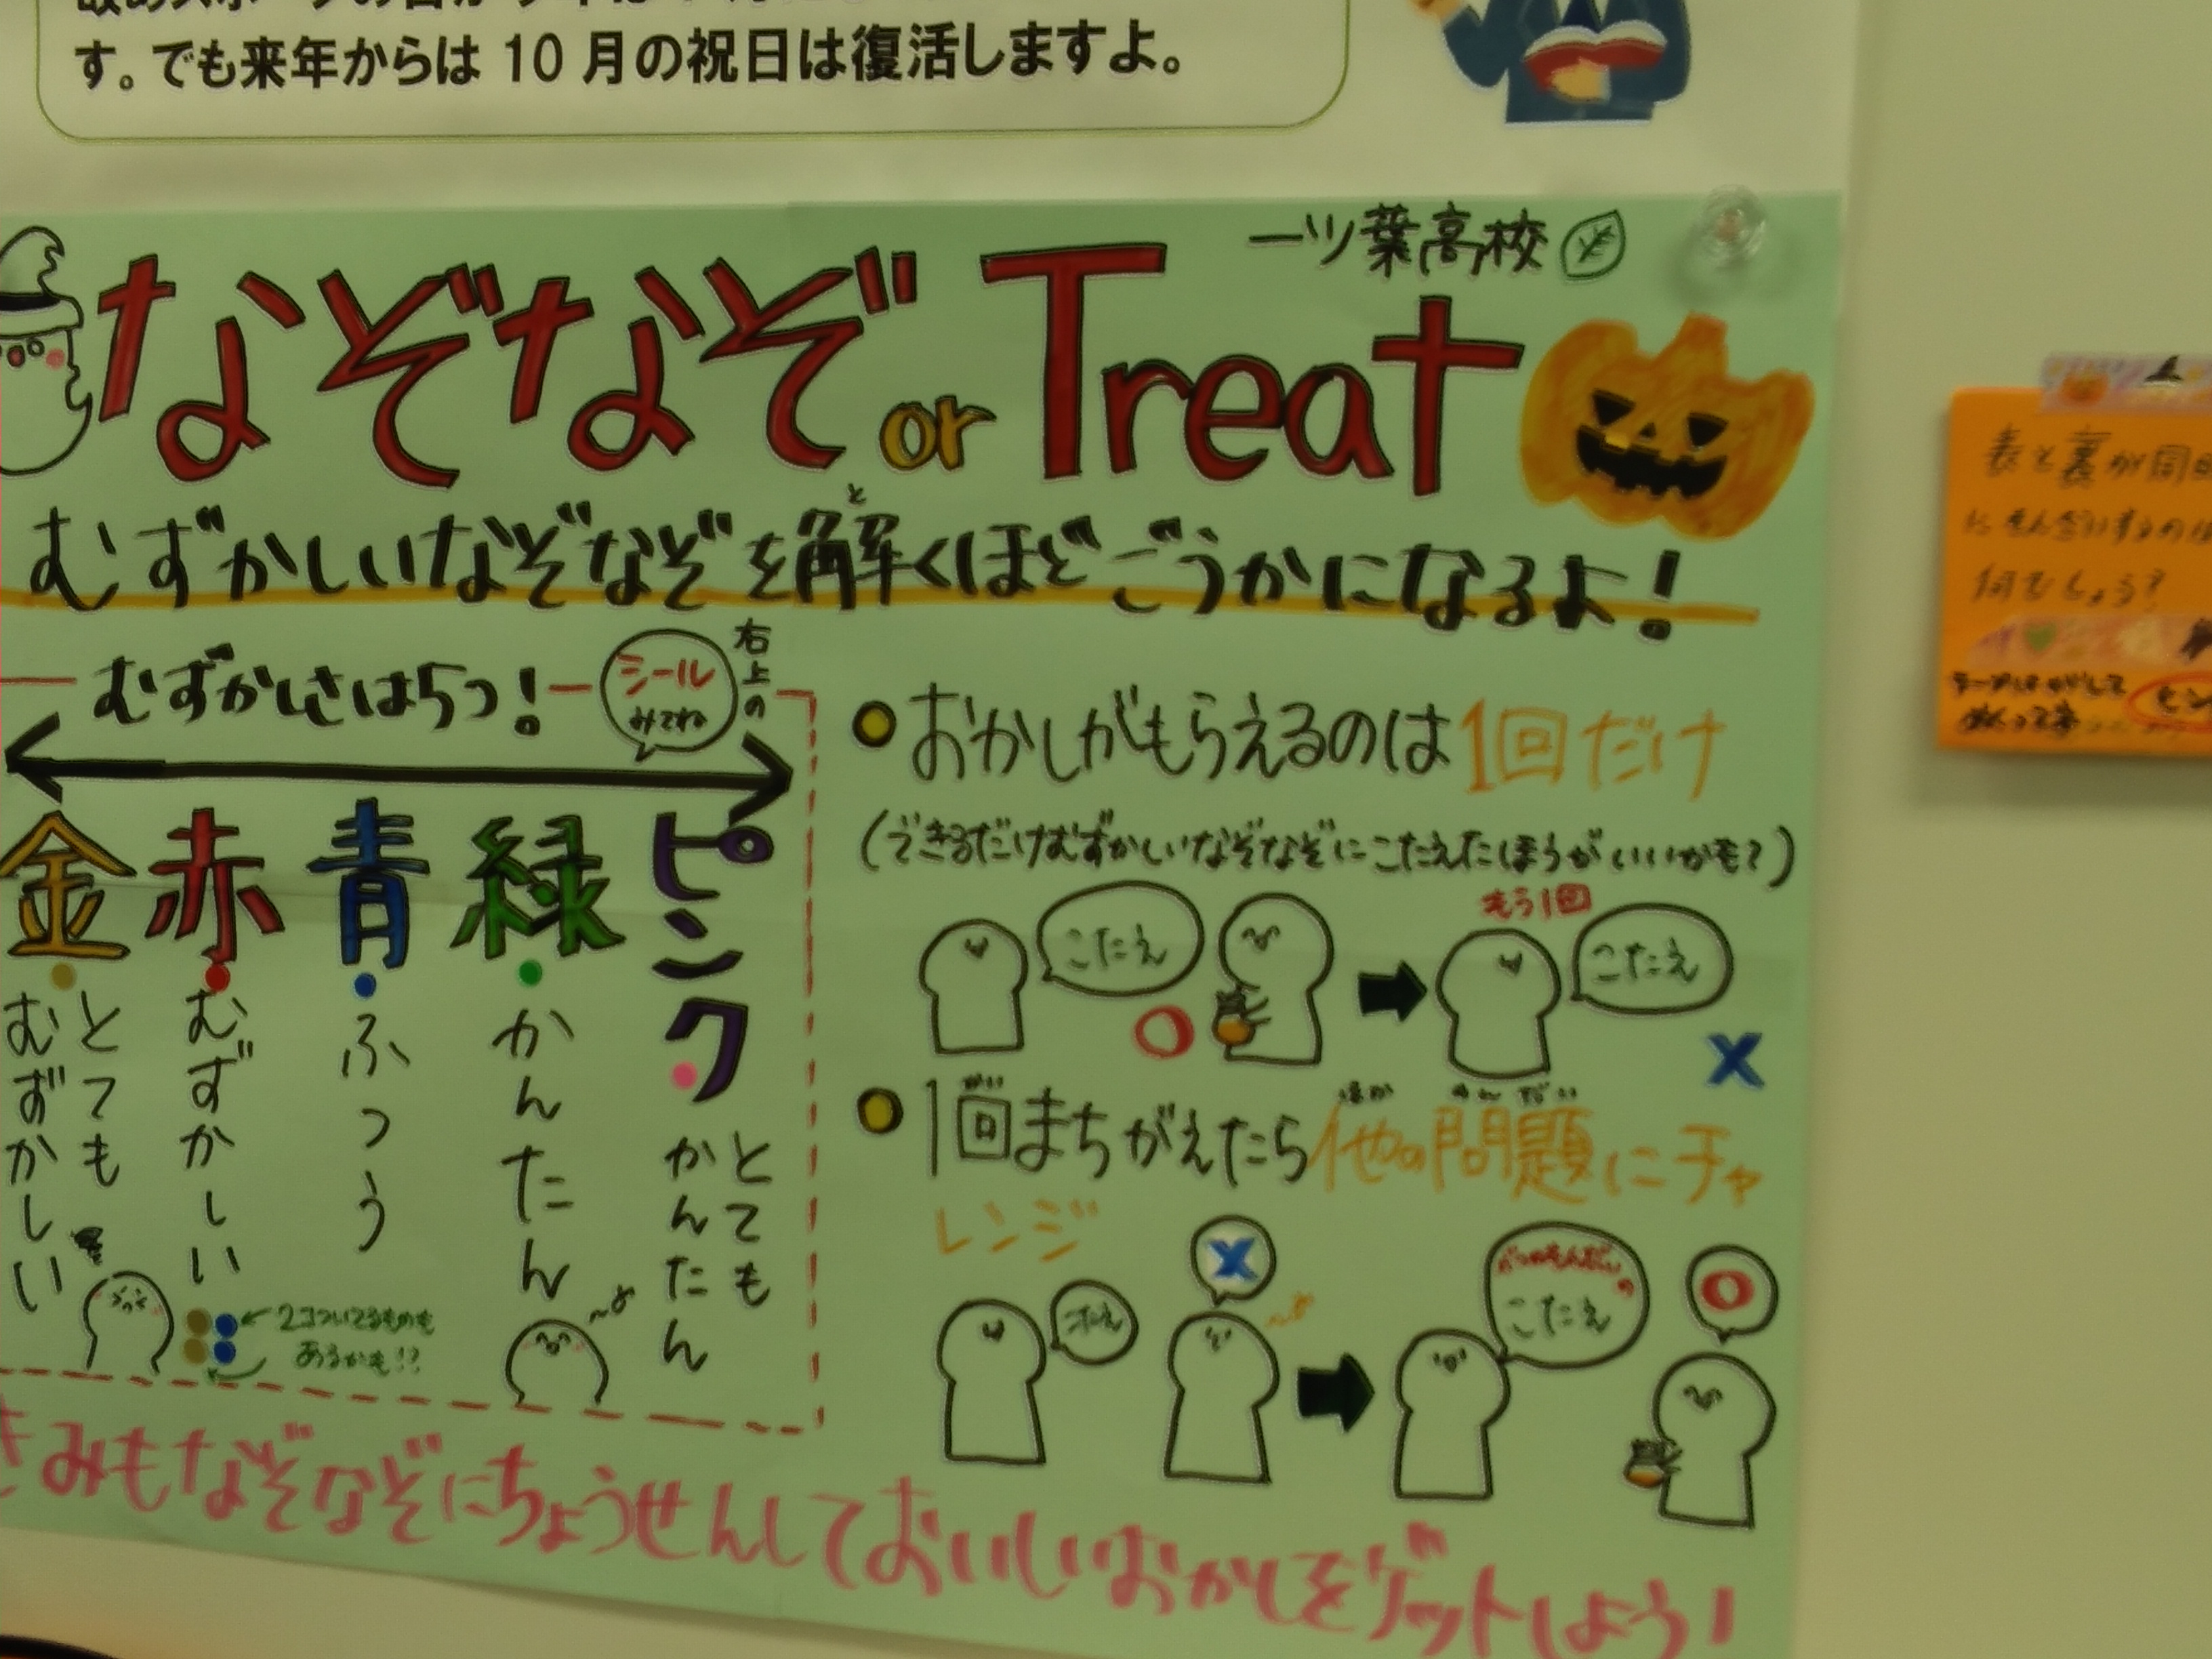 す。でも来年からは 10 月の祝日は復活しますよ。
一ツ葉高校
なぞなぞ or Treat
むずかしいなぞなぞを解くほどごうかになるよ！
と
むずかしさは5つ！
シール
みてね
右上の
金
とても
むずかしい
赤
むずかしい
青
ふつう
緑
かんたん
ピンク
とても
かんたん
2コついてるものも
あるかも!?
おかしがもらえるのは1回だけ
(できるだけむずかしいなぞなぞにこたえたほうがいいかも?)
こたえ
もう1回
こたえ
1回まちがえたら他の問題にチャ
かい
ほか
もんだい
レンジ
こたえ
べつのもんだいの
こたえ
きみもなぞなぞにちょうせんしておいしいおかしをゲットしよう!
表と裏が同
何でしょう?
テープはがして
めくってネ
ヒン